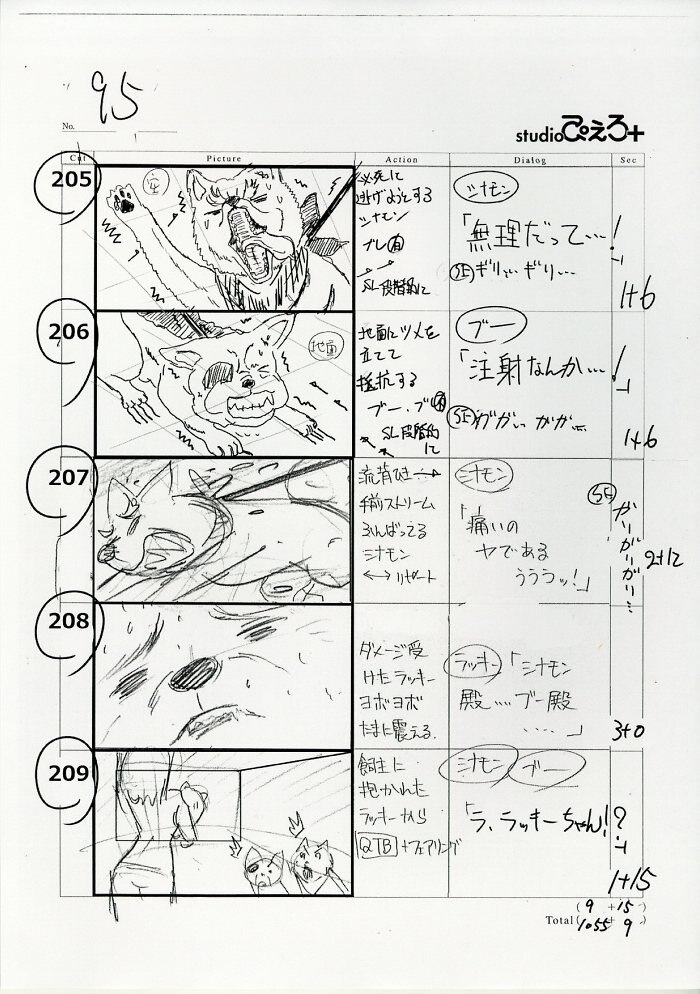 95
No.
studioぴえろ+
Cut Picture Action Dialog Sec
205
空
必死に
逃げようとする
シナモン
ブレ
SL 段階的に
シナモン
「無理だって…!」
SE ギリ… ギリ…
1+6
206
地面
地面にツメを
立てて
抵抗する
ブー、ブレ
SL 段階的
に
ブー
「注射なんか…!」
SE ガガ… ガガ…
1+6
207
流背ひき
手前ストリーム
ふんばってる
シナモン
←→リピート
シナモン
「痛いの
ヤである
うううッ!」
SE
がりがりがり…
2+12
208
ダメージ受
けたラッキー
ヨボヨボ
たまに震える.
ラッキー
「シナモン
殿……ブー殿
……」
3+0
209
飼主に
抱かれた
ラッキーから
QTB+フェアリング
シナモン ブー
「ラ、ラッキーちゃん!?」
1+15
( 9 +15 )
Total (1055+ 9 )